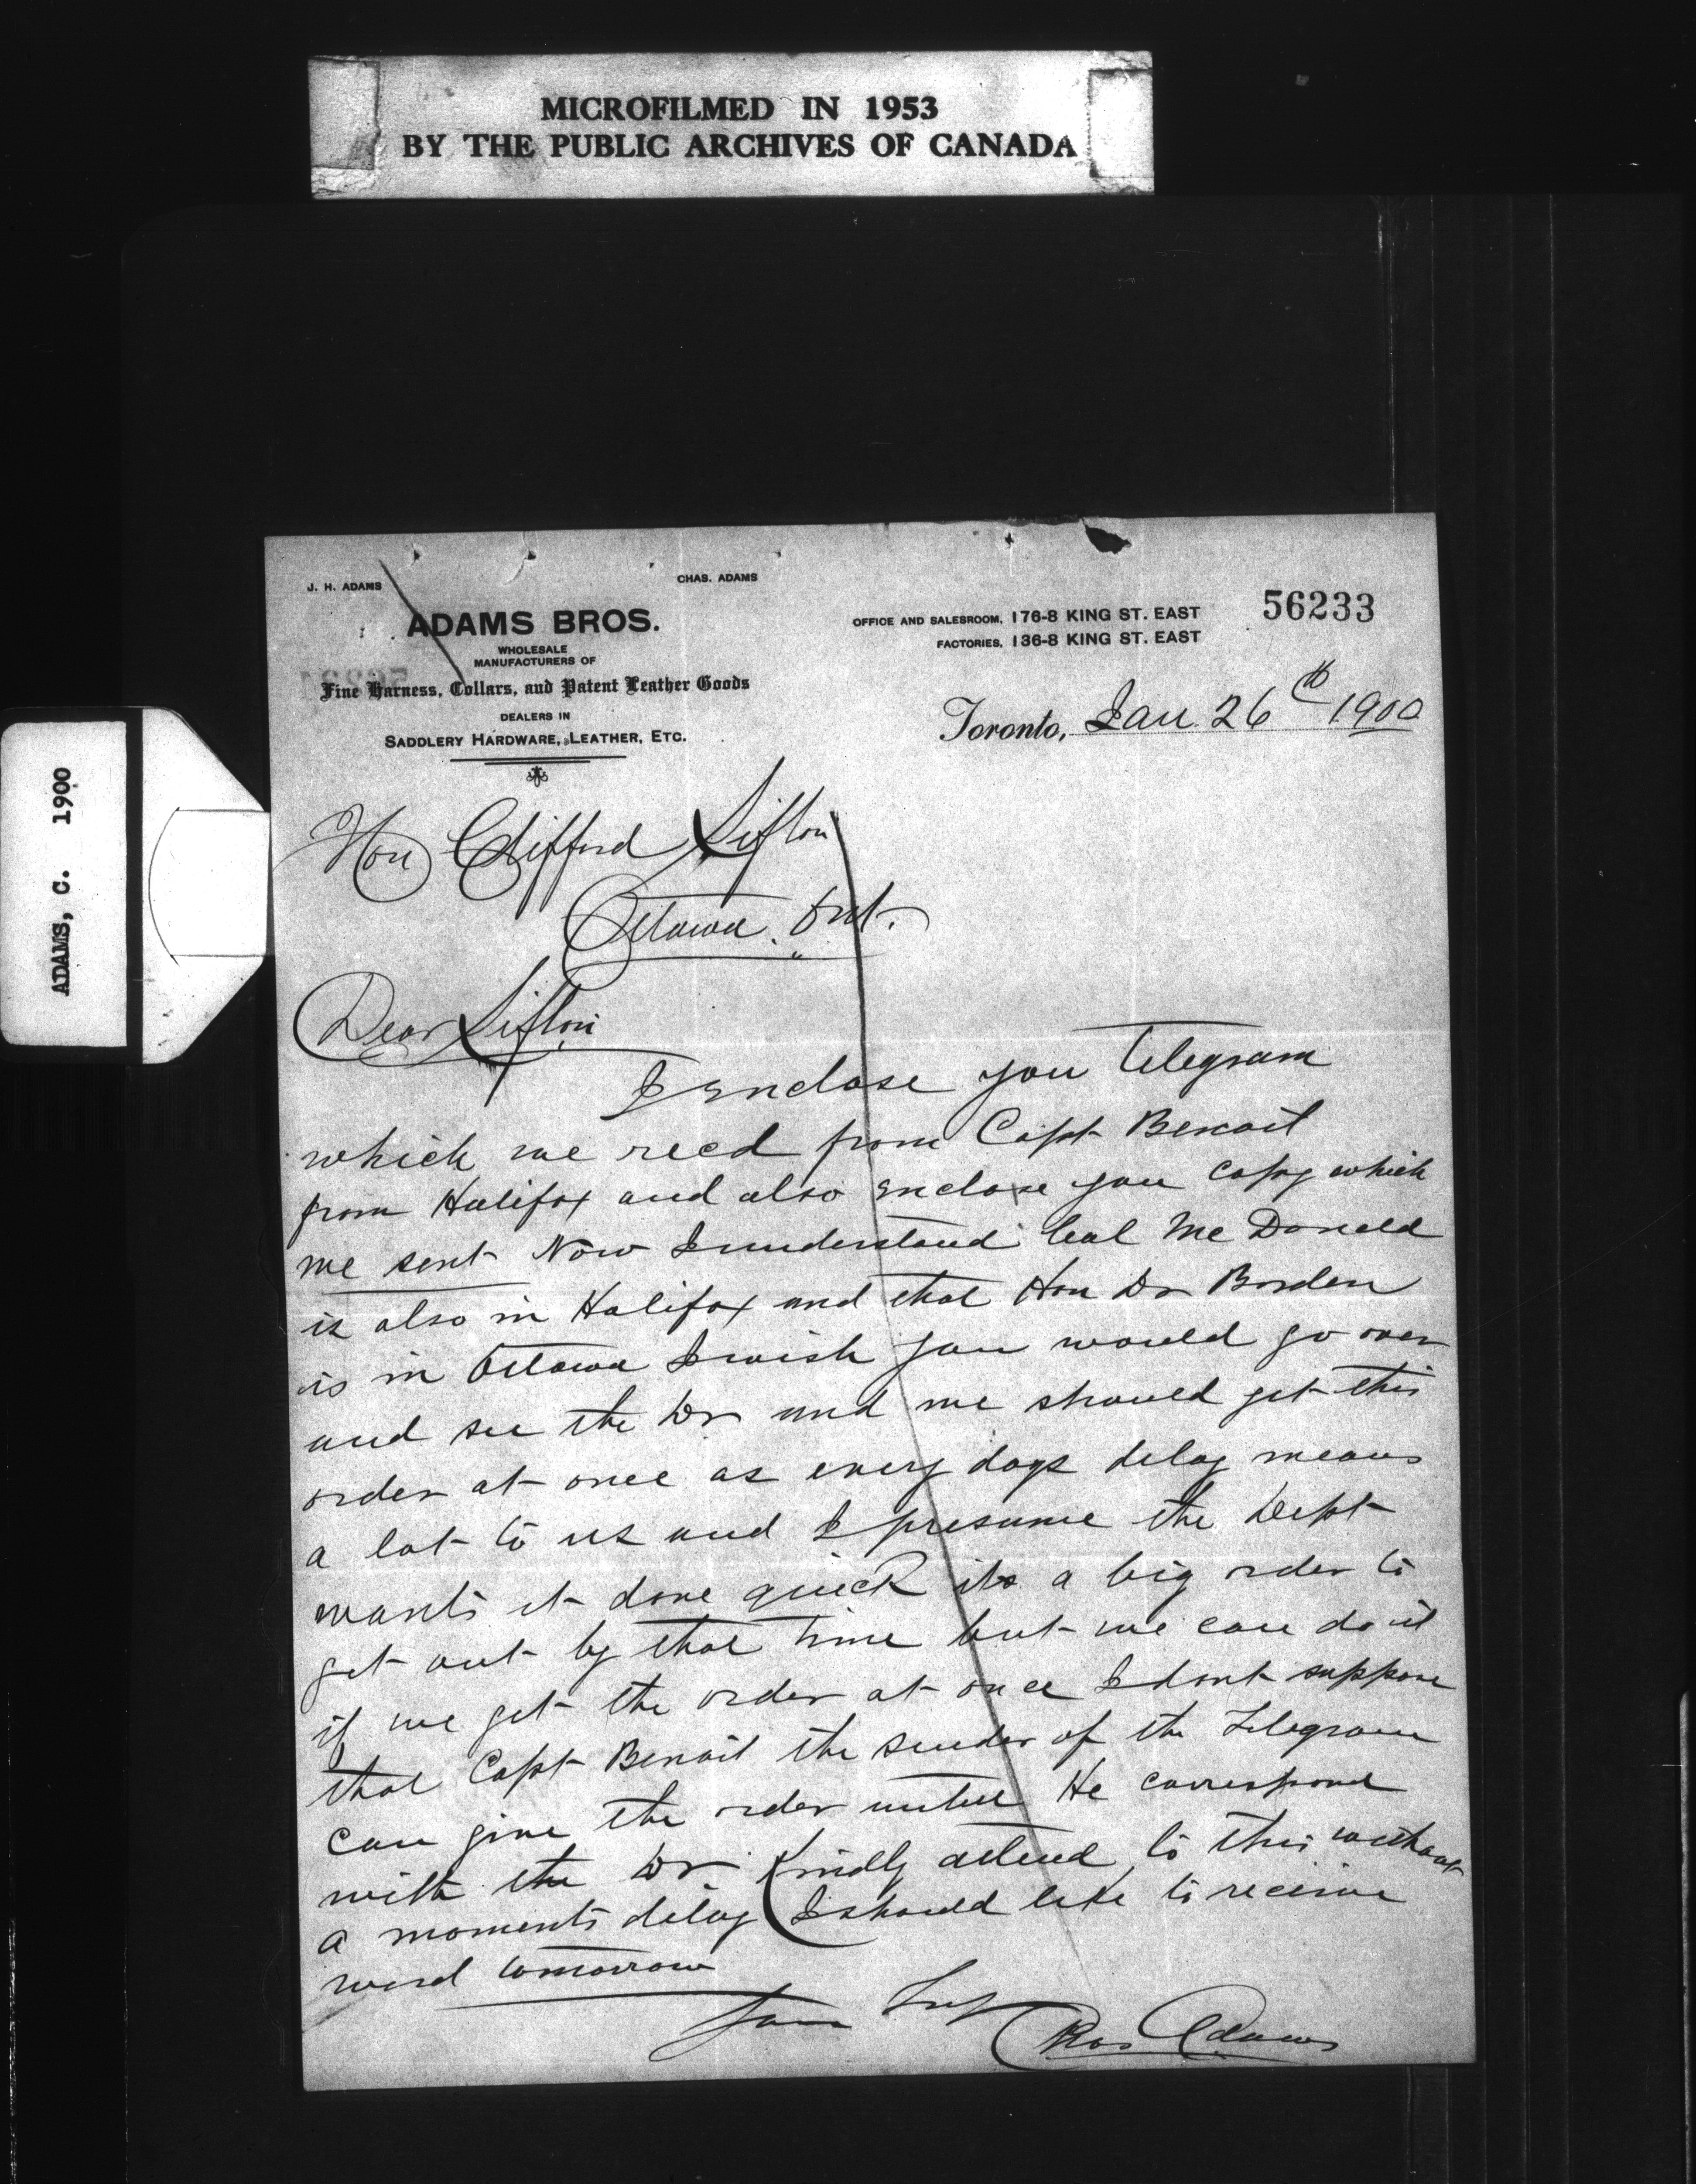 MICROFILMED IN 1953
BY THE PUBLIC ARCHIVES OF CANADA
ADAMS, C. 1900
J. H. ADAMS
CHAS. ADAMS
56233
ADAMS BROS.
WHOLESALE
MANUFACTURERS OF
Fine Harness, Collars, and Patent Leather Goods
DEALERS IN
SADDLERY HARDWARE, LEATHER, ETC.
OFFICE AND SALESROOM, 176-8 KING ST. EAST
FACTORIES, 136-8 KING ST. EAST
Toronto, Jan 26th 1900
Hon Clifford Sifton
Ottawa. Ont.
Dear Sifton
I Enclose you Telegram
which we recd from Capt Benoit
from Halifax and also Enclose you copy which
we sent Now I understand Col McDonald
is also in Halifax and that Hon Dr Borden
is in Ottawa I wish you would go over
and see the Dr and we should get this
order at once as every days delay means
a lot to us and I presume the Dept
wants it done quick its a big order to
get out by that time but we can do it
if we get the order at once I dont suppose
that Capt Benoit the sender of the Telegram
can give the order untill He correspond
with the Dr Kindly attend to this without
a moments delay I should like to receive
word tomorrow
Yours Truly
Chas Adams